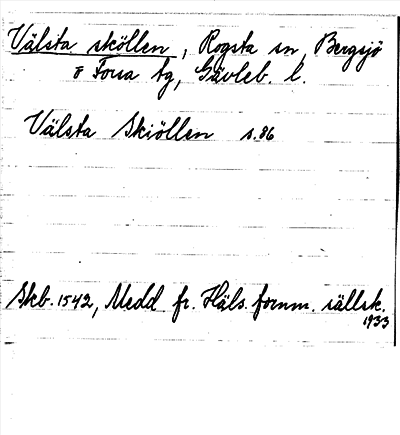 Välsta sköllen, Rogsta sn, Bergsjö
o Forsa tg, Gävleb. l.
Välsta Skiöllen s. 86
Skb. 1542, Medd. fr. Häls. fornm. sällsk.
1933